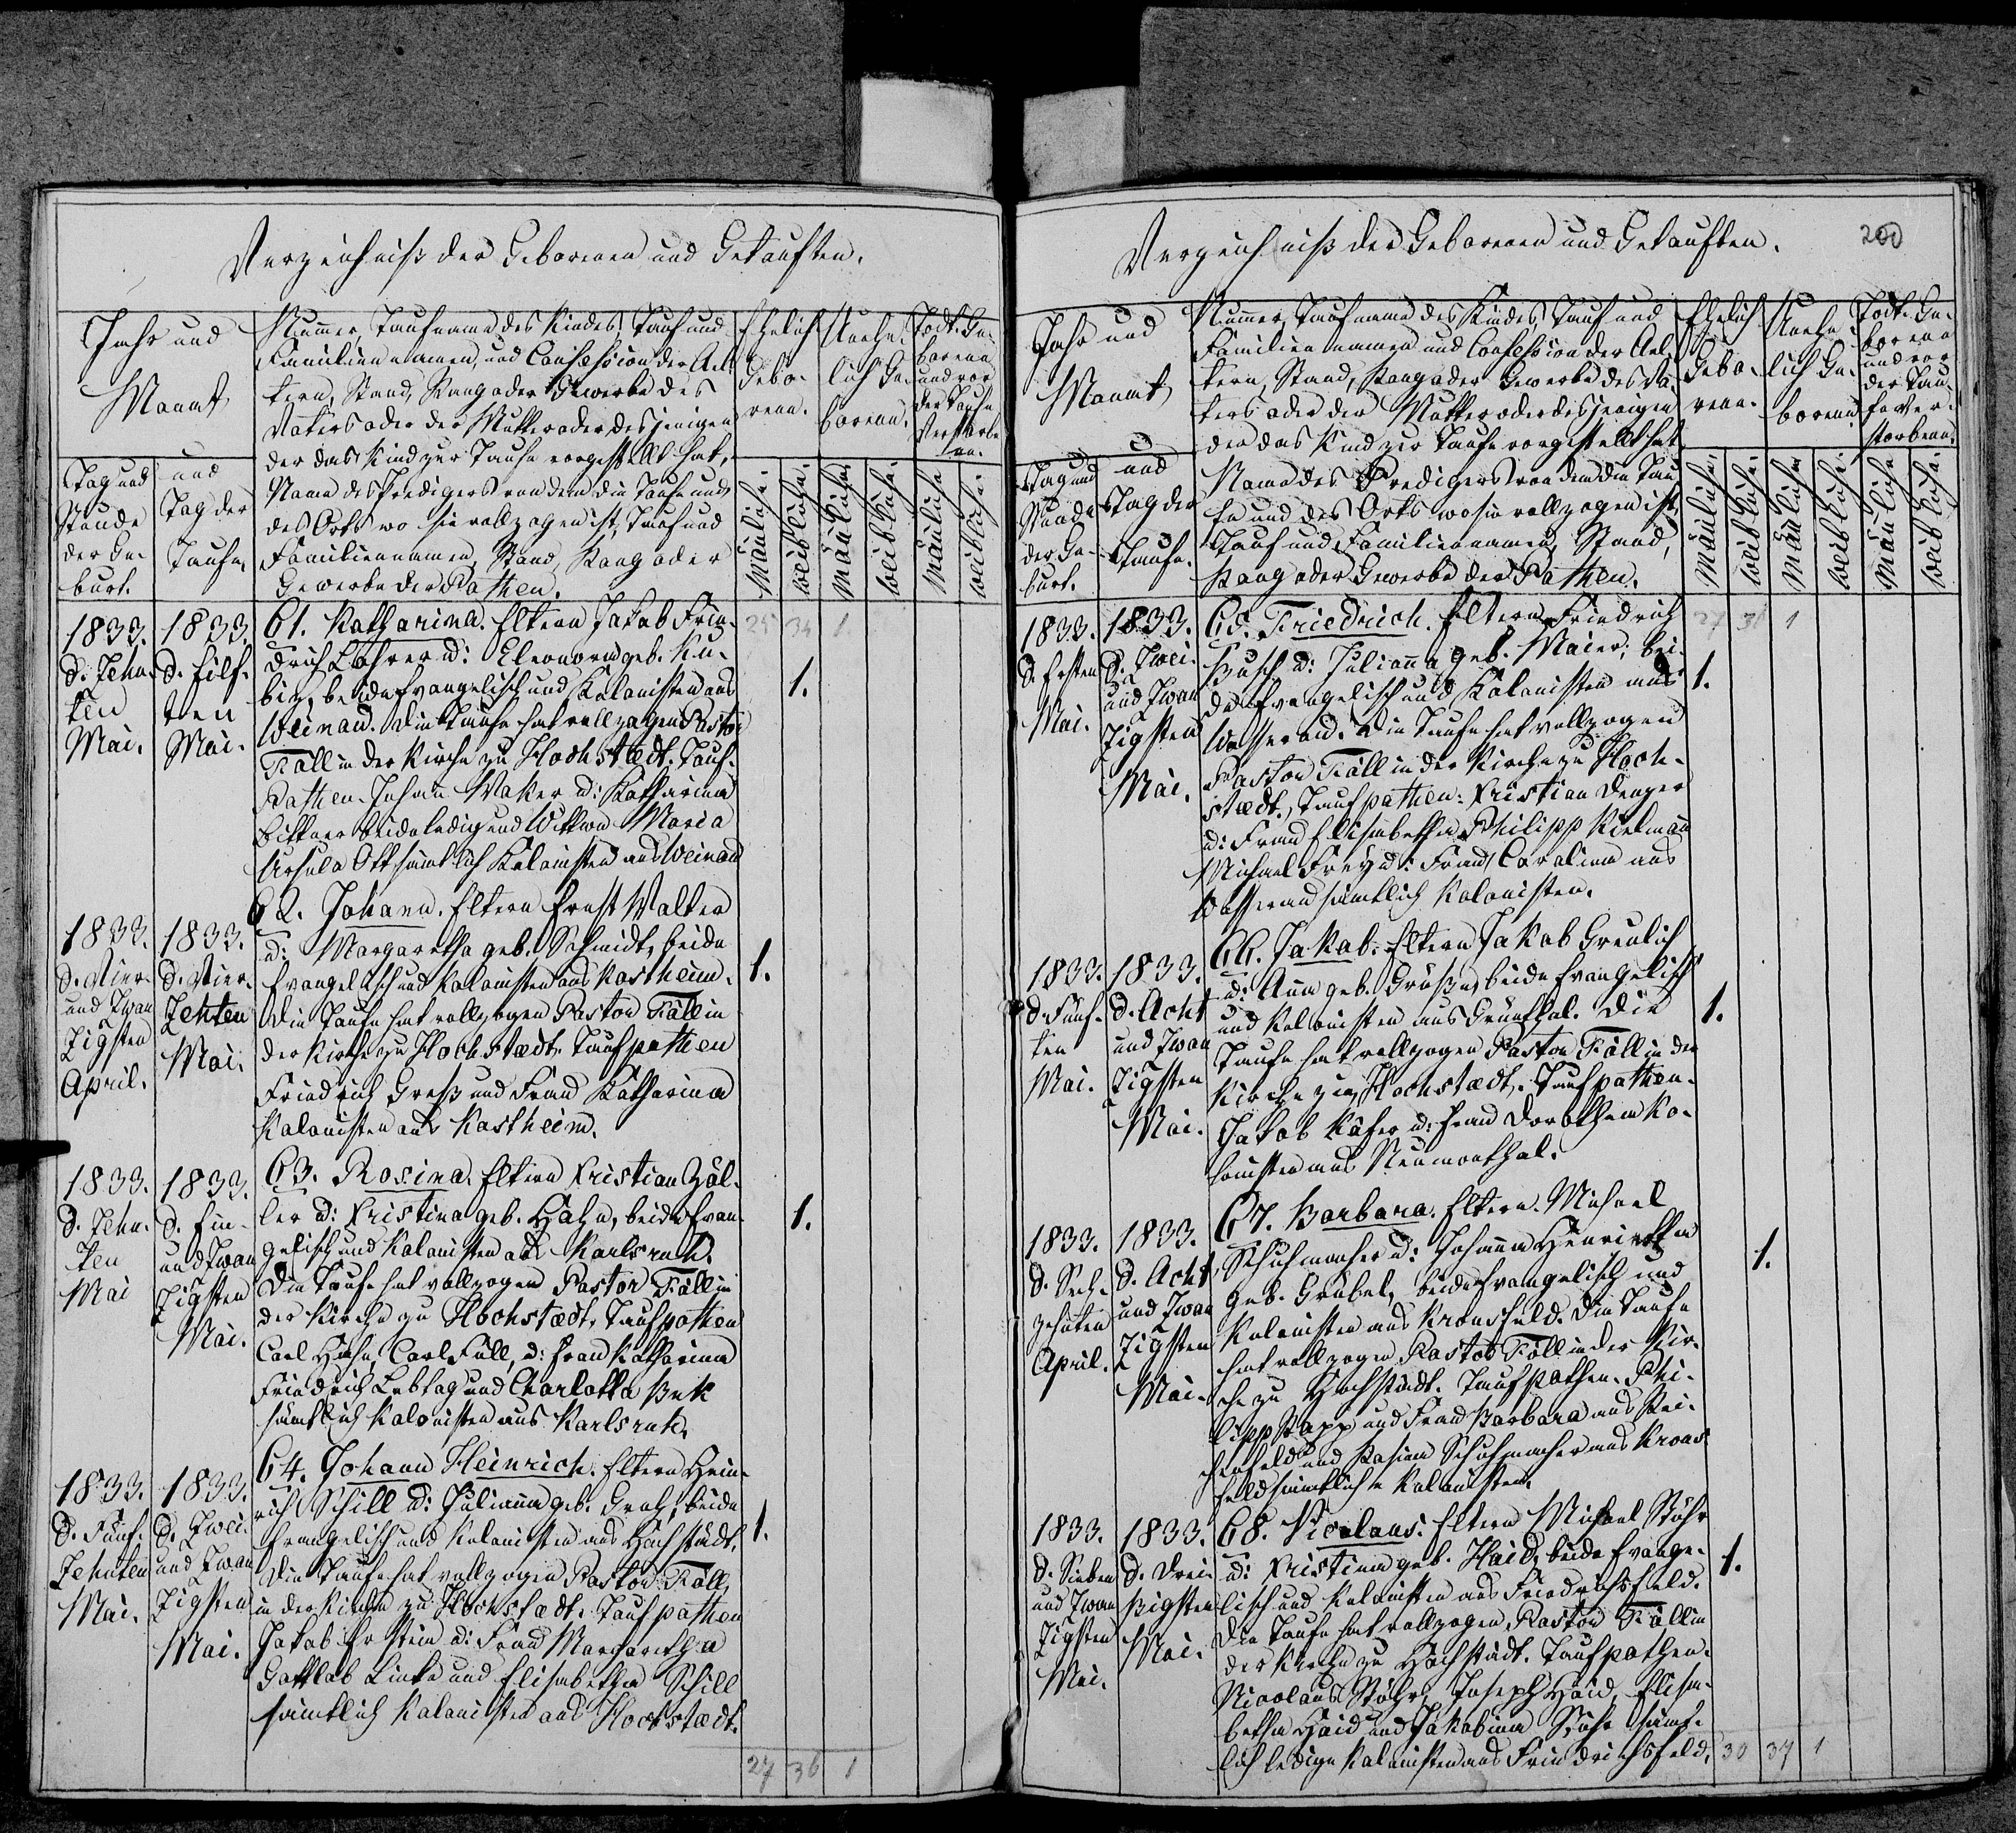 Verzeichniß der Geborenen und Getauften.
Jahr und
Monat
Tag und
Stunde
der Ge-
burt.
und
Tag der
Taufe.
Nummer, Taufname des Kindes, Tauf und
Familiennamen, und Confession der Ael-
tern, Stand, Rang oder Gewerbe des
Vaters oder der Mutter oder desjenigen
der das Kind zur Taufe vorgestellt hat,
Name des Predigers von dem die Taufe und
des Orts wo sie vollzogen ist, Tauf und
Familiennamen, Stand, Rang oder
Gewerbe der Pathen.
Ehelich
Gebo-
rene.
Unehe-
lich Ge-
borene.
Todt Ge-
borene
und vor
der Taufe
Verstorbe-
ne.
Mänliche.
weibliche.
Mänliche
weibliche.
Mänliche
weibliche.
1833.
d. Zehn-
ten
Mai.
1833.
d. Eilf-
ten
Mai.
61. Katharina. Eltern Jakob Frie-
drich Lohrer u: Eleonora geb. Ku-
biz, beide Evangelisch und Kolonisten aus
Weinau. Die Taufe hat vollzogen Pastor
Föll in der Kirche zu Hochstædt. Tauf-
Pathen. Johann Maker u: Katharina
Bittner beide ledig und Wittwe Maria
Ursula Ott sämtlich Kolonisten aus Weinau
25 34 1
1.
1833.
d. Vier-
und Zwan
zigsten
April.
1833.
d. Vier-
zehten
Mai.
62. Johann. Eltern Ernst Walter
u: Margaretha geb. Schmidt, beide
Evangelisch und Kolonisten aus Kostheim.
Die Taufe hat vollzogen Pastor Föll in
der Kirche zu Hochstædt. Taufpathen
Friedrich Groß und Frau Katharina
Kolonisten aus Kostheim.
1.
1833.
d. Zehn-
ten
Mai
1833.
d. Ein-
und Zwan
zigsten
Mai.
63. Rosina. Eltern Kristian Zöl-
ler u: Kristina geb. Hahn, beide Evan-
gelisch und Kolonisten aus Karlsruh.
Die Taufe hat vollzogen Pastor Föll in
der Kirche zu Hochstædt. Taufpathen
Carl Hahn, Carl Füll, u: Frau Katharina
Friedrich Lebtag und Charlotta Bek
sämtlich Kolonisten aus Karlsruh.
1.
1833.
d. Fünf-
zehnten
Mai.
1833.
d. Zwei-
und Zwan
zigsten
Mai.
64. Johann Heinrich. Eltern Hein-
rich Schill u: Julianna geb. Graz, beide
Evangelisch und Kolonisten aus Hochstädt.
Die Taufe hat vollzogen Pastor Föll
in der Kirche zu Hochstædt. Taufpathen
Jakob Erstein u: Frau Margaretha
Gottlob Linke und Elisabetha Schill
sämtlich Kolonisten aus Hochstædt.
1.
27 36 1
Verzeichniß der Geborenen und Getauften.
200
Jahr und
Monat
Tag und
Stunde
der Ge-
burt.
und
Tag der
Taufe.
Nummer, Taufname des Kindes, Tauf und
Familiennamen und Confession der Ael-
tern, Stand, Rang oder Gewerbe des Va-
ters oder der Mutter oder desjenigen
der das Kind zur Taufe vorgestellt hat
Name des Predigers von dem die Tau-
fe und des Orts wo sie vollzogen ist,
Tauf und Familiennamen, Stand,
Rang oder Gewerbe der Pathen.
Ehelich
Gebo-
rene.
Unehe-
lich Ge-
borene.
Todt Ge-
borene
und vor
der Tau-
fe Ver-
storbene.
Mänliche
weibliche.
Mänliche
weibliche.
Mänliche
weibliche.
1833.
d. Ersten
Mai.
1833.
d. Zwei-
und Zwan
zigsten
Mai.
65. Friedrich. Eltern Friedrich
Busch u: Julianna geb. Maier, bei-
de Evangelisch und Kolonisten aus
Wasserau. Die Taufe hat vollzogen
Pastor Föll in der Kirche zu Hoch-
stædt. Taufpathen: Kristian Denger
u: Frau Elisabetha Philipp Kielmañ
Michael Frey u: Frau Carolina aus
Wasserau sämtlich Kolonisten.
27 36 1
1.
1833.
d. Fünf-
ten
Mai.
1833.
d. Acht
und Zwan
zigsten
Mai.
66. Jakob. Eltern Jakob Greulich
u: Anna geb. Große, beide Evangelisch
und Kolonisten aus Grünthal. Die
Taufe hat vollzogen Pastor Föll in der
Kirche zu Hochstædt. Taufpathen.
Jakob Käfer u: Frau Dorothea Ko-
lonisten aus Neumonthal.
1.
1833.
d. Sech-
zehnten
April.
1833.
d. Acht
und Zwan
zigsten
Mai.
67. Barbara. Eltern. Michael
Schuhmacher u: Johanna Henrietta
geb. Grubel, beide Evangelisch und
Kolonisten aus Kronsfeld. Die Taufe
hat vollzogen Pastor Föll in der Kir-
che zu Hochstädt. Taufpathen. Phi-
lipp Rapp und Frau Barbara aus Rei-
chenfeld und Rosina Schuhmacher aus Krons-
feld sämtliche Kolonisten.
1.
1833.
d. Sieben
und Zwan
zigsten
Mai.
1833.
d. Drei-
ßigsten
Mai.
68. Nicolaus. Eltern Michael Stöhr
u: Kristina geb. Haid, beide Evange-
lisch und Kolonisten aus Friedrichsfeld.
Die Taufe hat vollzogen Pastor Föll in
der Kirche zu Hochstädt. Taufpathen.
Nicolaus Stöhr, Joseph Haid, Elisa-
betha Haid und Jakobina Stöhr sämt-
lich ledige Kolonisten aus Friedrichsfeld.
1.
30 37 1